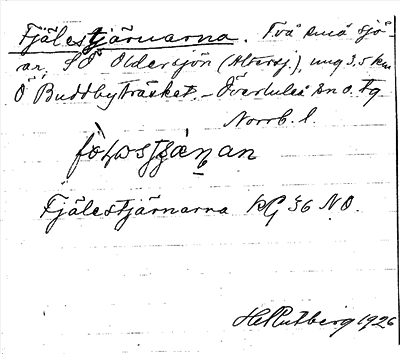 Fjälestjärnarna. Två små sjö-
ar, SO Oldersjön (Altersj.), ung 3,5 km
O Buddbyträsket. – Överluleå sn o. Fg
Norrb. l.
Fjälestjärnarna KG 36 NO.
H. Rutberg 1926